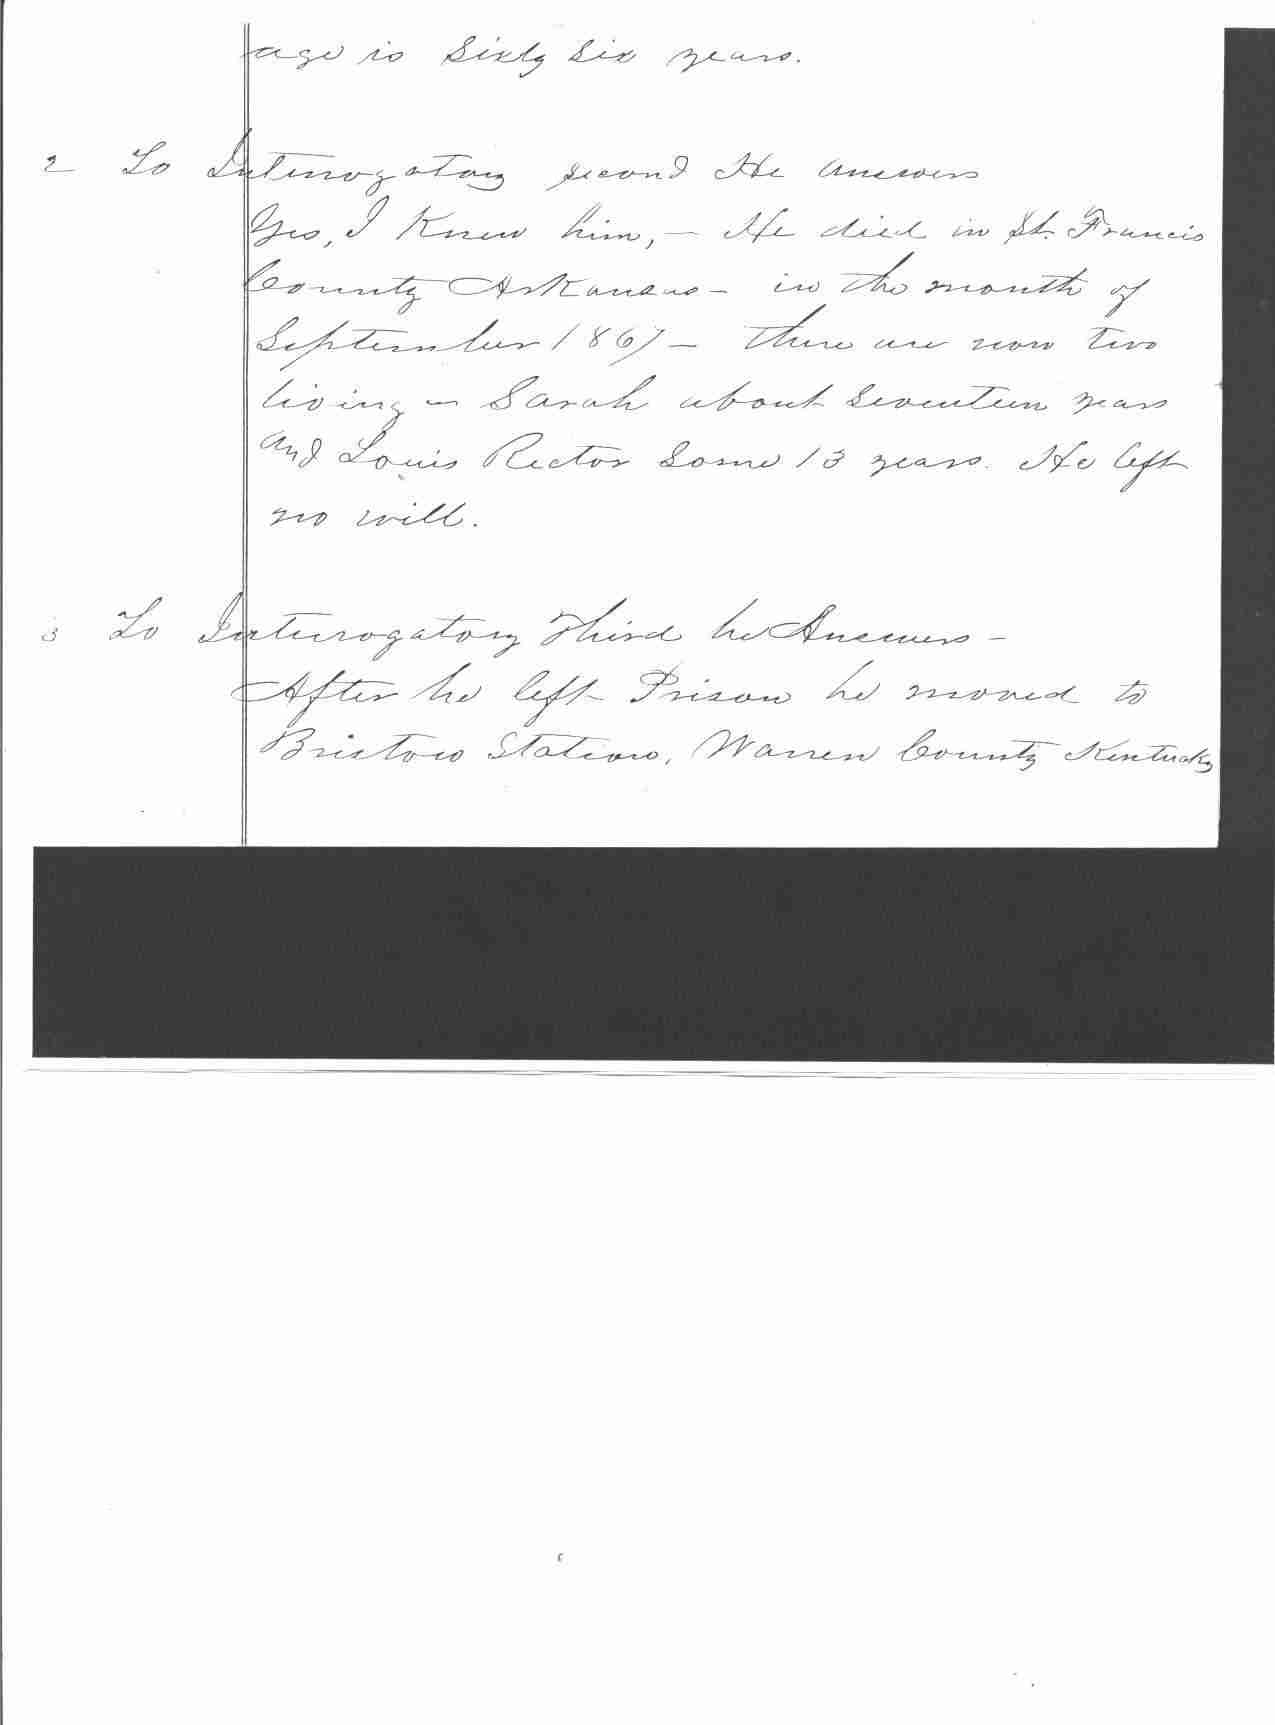 age is Sixty Six years.
2 To Interrogatory second He answers
Yes, I Knew him, - He died in St. Francis
County Arkansas - in the month of
September 1867 - there are now two
living - Sarah about Seventeen years
and Louis Rector Some 13 years. He left
no will.
3 To Interrogatory Third he Answers -
After he left Prison he moved to
Bristow Station, Warren County Kentucky